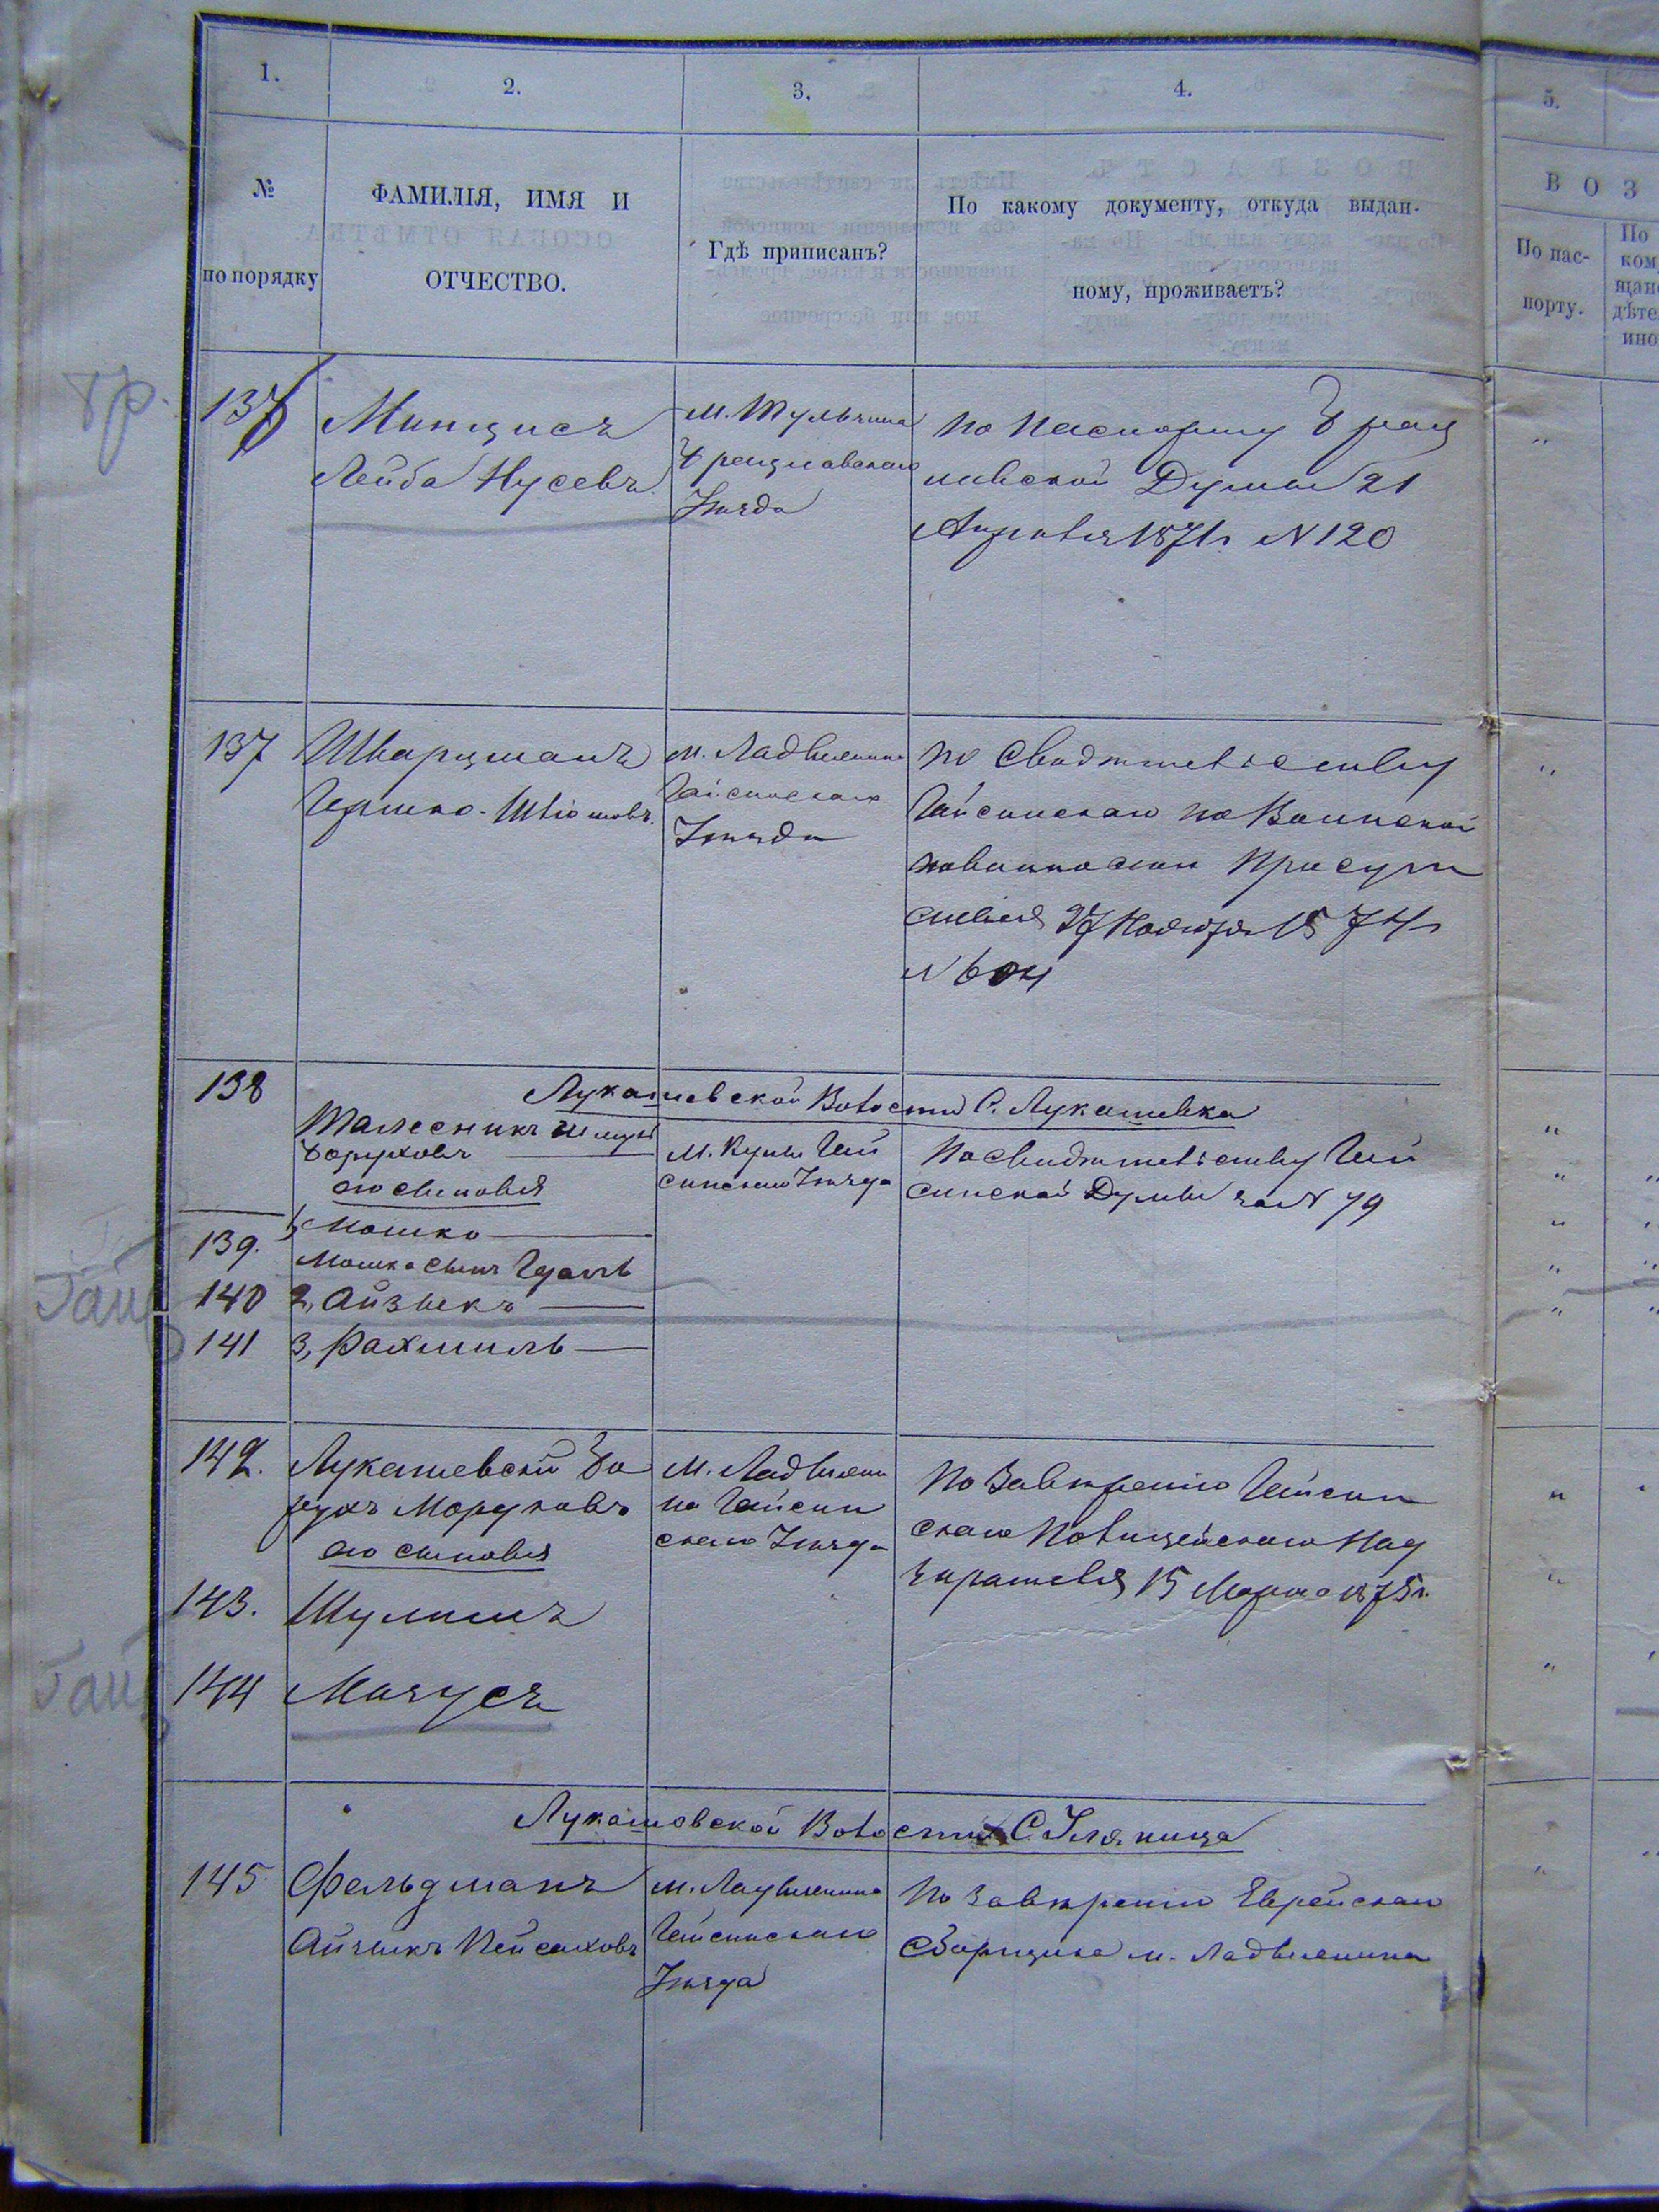 1.
2.
3.
4.
5.
№
по порядку
ФАМИЛІЯ, ИМЯ И
ОТЧЕСТВО.
Гдѣ приписанъ?
По какому документу, откуда выдан-
ному, проживаетъ?
ВОЗ
По пас-
порту.
По
ком
щан
дѣте
ино
бр.
136
Минцисъ
Лейба Нусевъ
м. Тульчина
Брацлавскаго
Уѣзда
по паспорту Брац
лавской Думы 21
Апрѣля 1871г. N 120
137
Шварцманъ
Гершко-Шліомовъ
м. Ладыжина
Гайсинскаго
Уѣзда
по свидѣтельству
Гайсинскаго по Воинской
повинности Присут
ствія 27 Ноября 1874г
N 604
138
Лукашевской Волости С. Лукашевка
Талесникъ Шмуль
Борухов
его сыновья
м. Куны Гай
синскаго Уѣзда
По свидѣтельству Гай
синской Думы за N 79
139.
1, Мошко
Мошка сынъ Гдаль
Гайс
140
2, Айзыкъ
141
3, Рахмиль
142.
Лукашевскій Бо
рухъ Мордковъ
его сыновья
м. Ладыжи
на Гайсин
скаго Уѣзда
По завѣренію Гайсин
скаго Полицейскаго Над
зирателя 15 Марта 1875г.
143.
Шулимъ
Гайс
144
Манусъ
Лукашовской Волости С.
145
Фельдманъ
Айзыкъ Пейсаховъ
м. Ладыжина
Гайсинскаго
Уѣзда
По завѣренію Еврейскаго
Сборщика м. Ладыжина